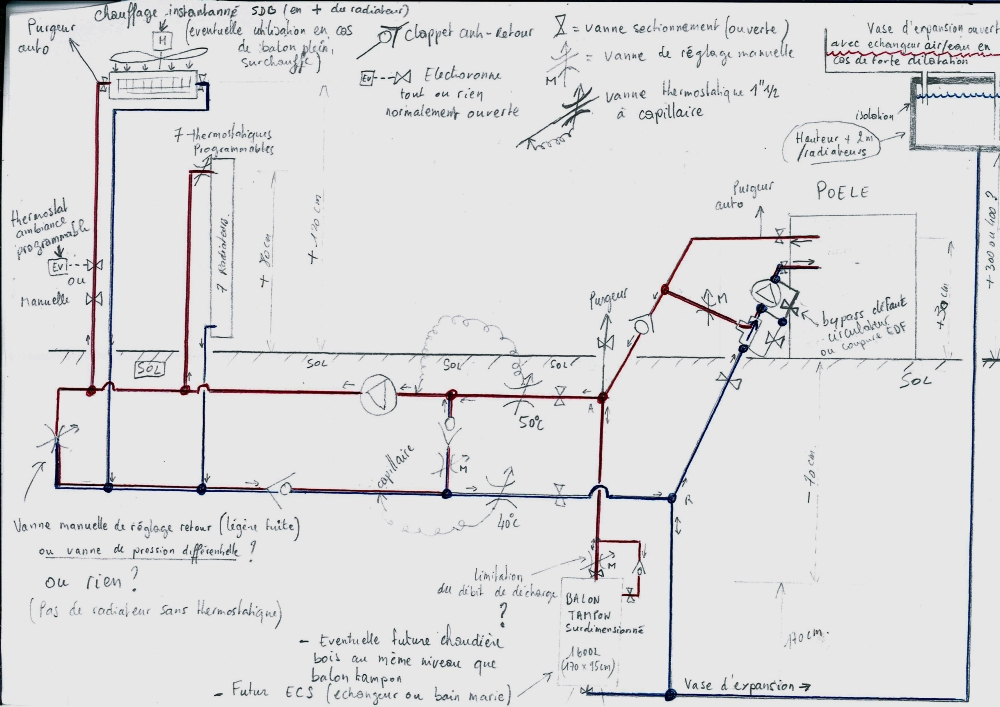 Purgeur
auto
chauffage instantanné SDB (en + du radiateur)
(eventuelle utilisation en cas
de balon plein,
surchauffe)
H
Clappet anti-retour
Ev
Electrovanne
tout ou rien
normalement ouverte
= vanne sectionnement (ouverte)
= vanne de réglage manuelle
M
vanne thermostatique 1"1/2
à capillaire
Vase d'expansion ouvert
avec echangeur air/eau en
cas de forte dilatation
isolation
Hauteur + 2m
/radiateurs
7 thermostatiques
Programmables
7 Radiateurs
+ 80cm
+ 170 cm
thermostat
ambiance
programmable
Ev
ou
manuelle
Purgeur
auto
POELE
Purgeur
M
bypass défaut
circulateur
ou coupure EDF
+30cm
+300 ou 400 ?
SOL
SOL
SOL
SOL
SOL
A
50°C
capillaire
M
40°C
R
-70cm
Vanne manuelle de réglage retour (légère fuite)
ou vanne de pression différentielle ?
ou rien ?
(Pas de radiateur sans thermostatique)
Limitation
du débit de décharge
?
M
BALON
TAMPON
Surdimensionné
1600L
(170 x 95cm)
170cm
- Eventuelle future chaudière
bois au même niveau que
balon tampon
- Futur ECS (échangeur ou bain marie)
Vase d'expansion →